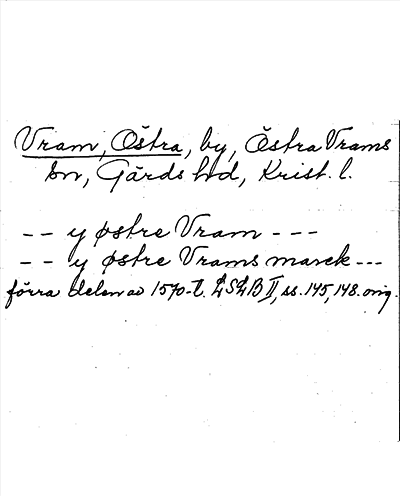 Vram, Östra, by, Östra Vrams
sn, Gärds hd, Krist. l.
-- y østre Vram ---
-- y østre Vrams marck ---
förra delen av 1570-t. LSLB II, ss. 145, 148. orig.